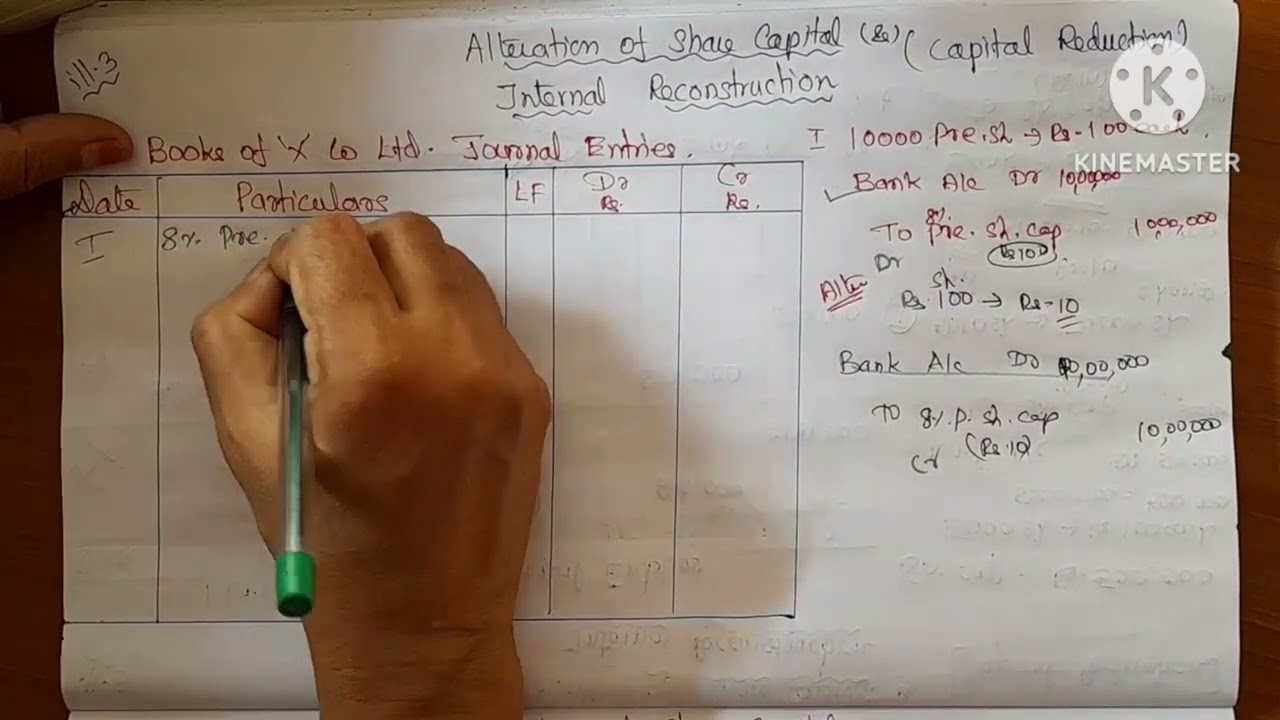 ill.3
Alteration of Share Capital (or) (Capital Reduction)
Internal Reconstruction
Books of X Co Ltd. Journal Entries.
Date Particulars LF Dr Rs. Cr Rs.
I 8% Pre.
I 10000 Pre.sh → Rs-100 each.
K
KINEMASTER
Bank A/c Dr 10,00,000
To 8% pre. sh. cap 10,00,000
Dr (Rs 100).
Alter sh.
Rs. 100 → Rs-10
Bank A/c Dr 10,00,000
To 8% p. sh. cap 10,00,000
Cr (Rs.10)